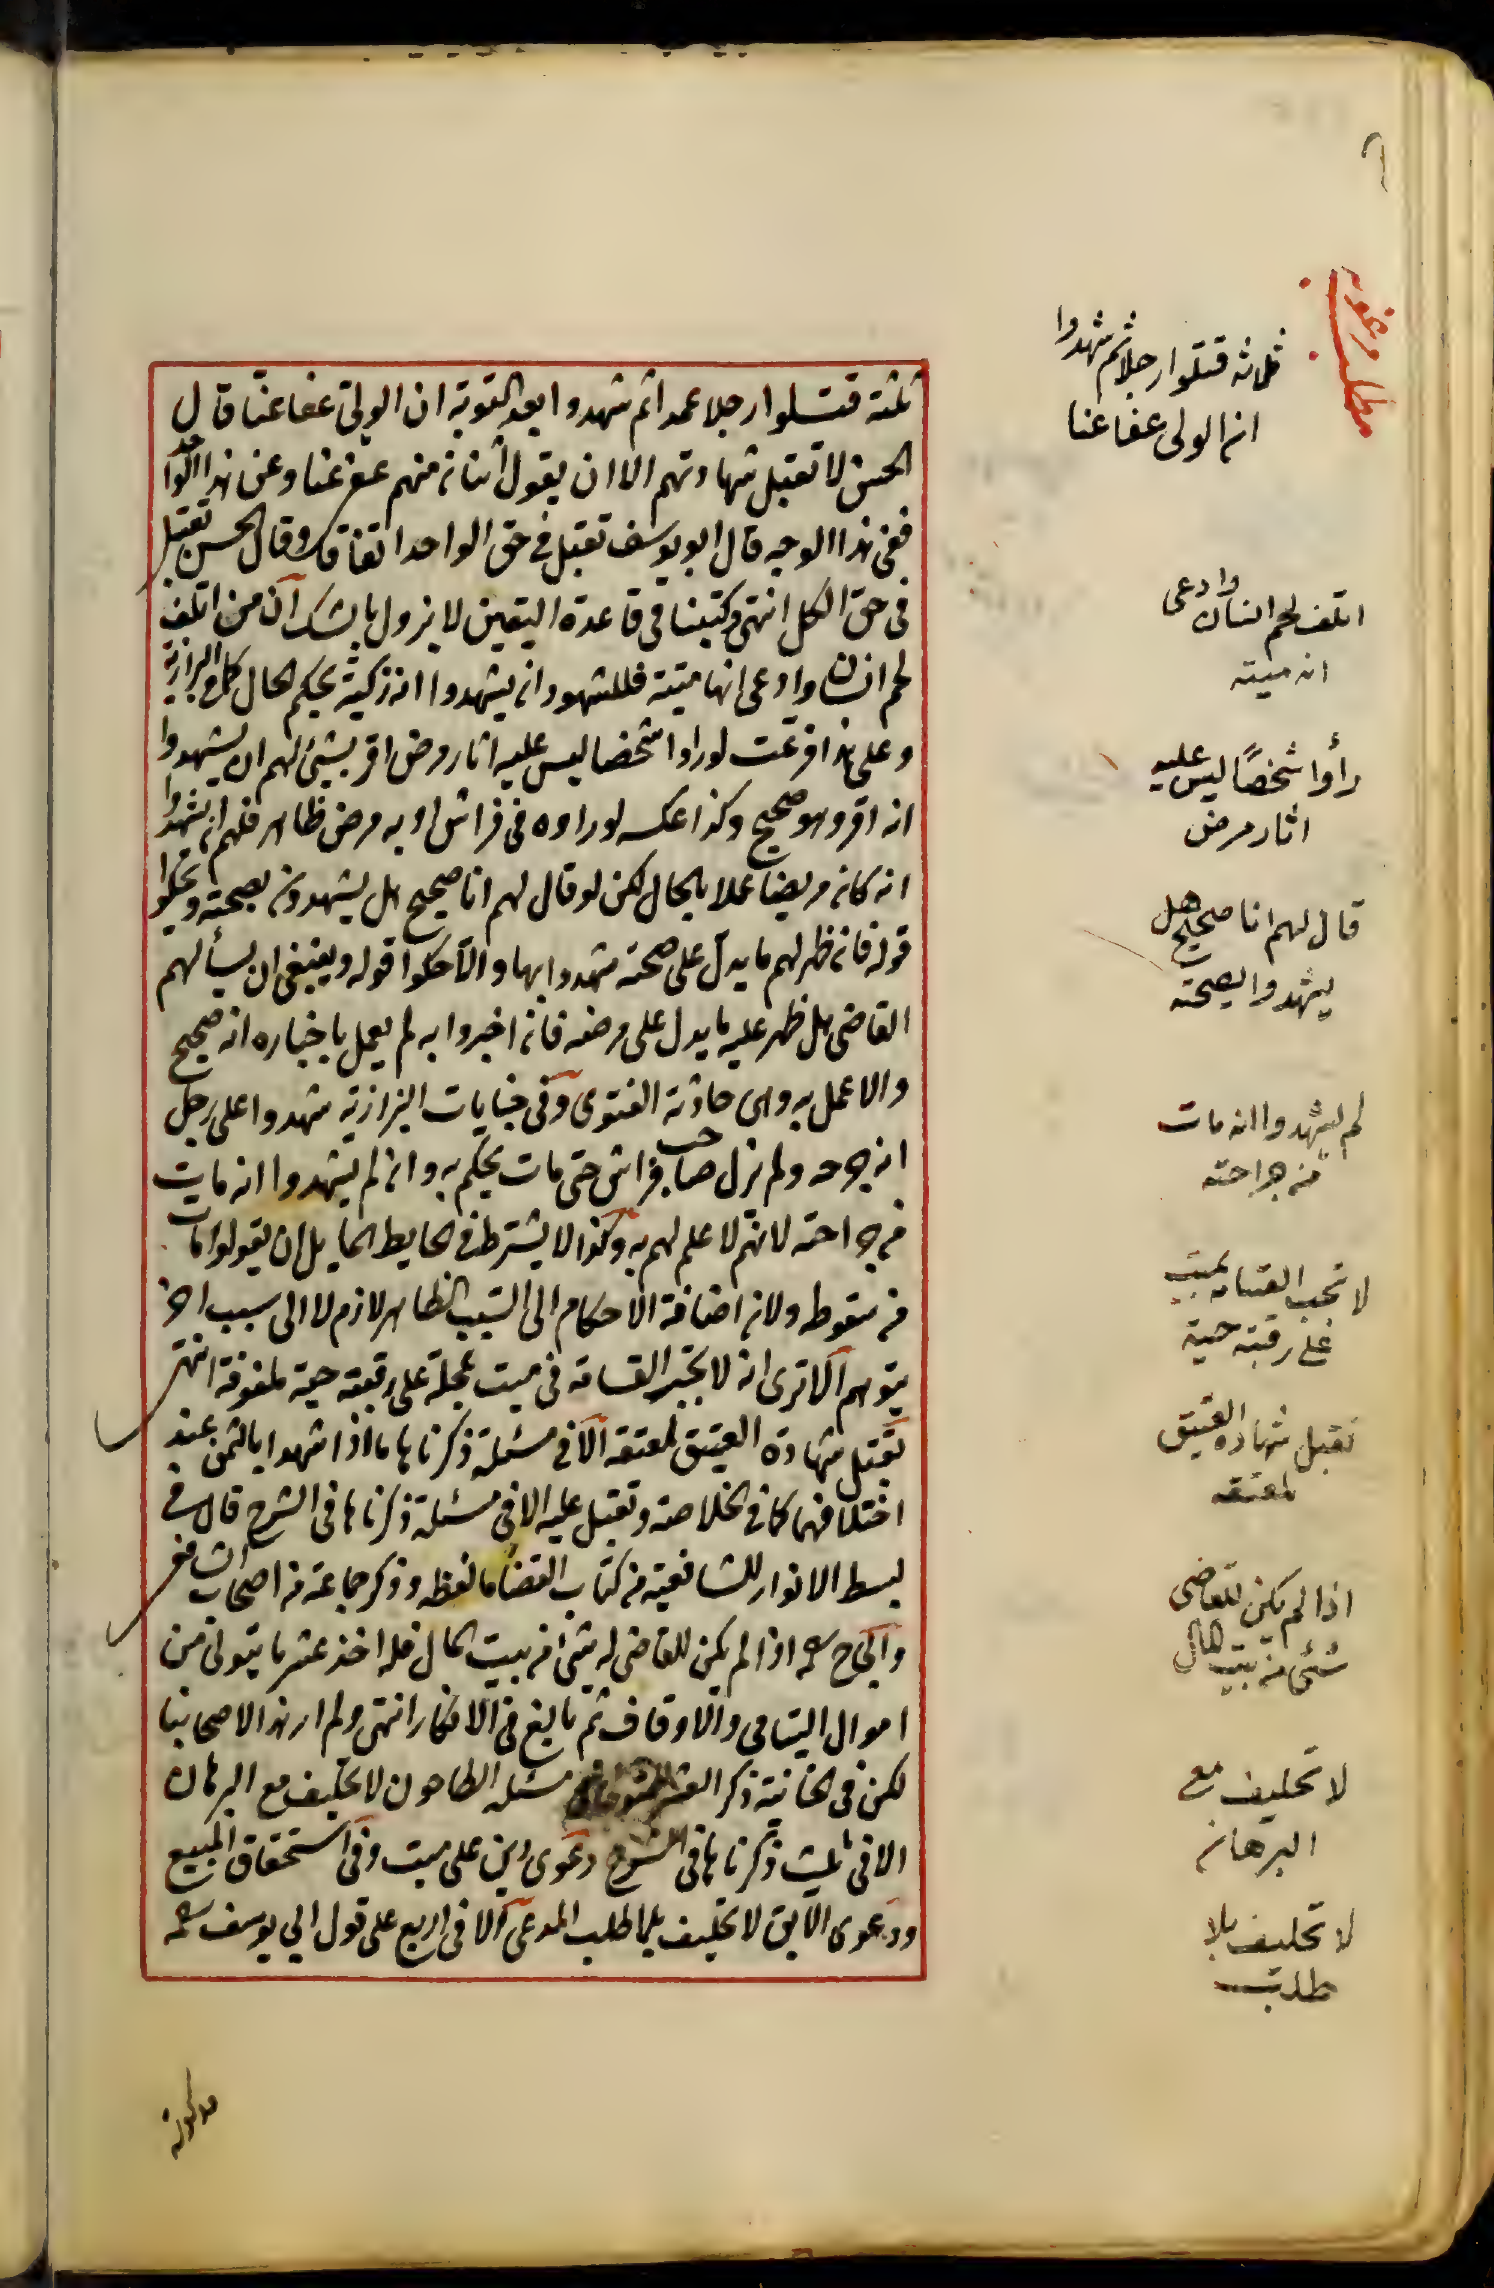 ثلثة قتلوا رجلا عمدا ثم شهدوا بعد التوبة ان الولي عفا عنا قال
الحسن لا تقبل شهادتهم الا ان يقول اثنان منهم عفى عنا وعن هذا الواحد
ففي هذا الوجه قال ابو يوسف تقبل في حق الواحد اتفاقا وقال الحسن تقبل
في حق الكل انتهى وكتبنا في قاعدة اليقين لا يزول بالشك ان من اتلف
لحم انسان وادعى انها ميتة فللشهود ان يشهدوا انه ذكية بحكم الحال كما في البزازية
وعلى هذا فرعت لو راوا شخصا ليس عليه اثار مرض اقر بشيئ لهم ان يشهدوا
انه اقر وهو صحيح وكذا عكسه لو راوه في فراش او به مرض ظاهر فلهم ان يشهدوا
انه كان مريضا عملا بالحال لكن لو قال لهم انا صحيح هل يشهدون بصحته ويحكوا
قوله فان ظهر لهم ما يدل على صحته شهدوا بها والا حكوا قوله وينبغي ان يسألهم
القاضي هل ظهر عليه ما يدل على مرضه فان اخبروا به لم يعمل باخباره انه صحيح
والا عمل به وهى حادثة الفتوى وفي جنايات البزازية شهدوا على رجل
انه جرحه ولم يزل صاحب فراش حتى مات يحكم به وان لم يشهدوا انه مات
من جراحته لانهم لا علم لهم به وكذا لا يشترط في الحايط المايل ان يقولوا مات
من سقوطه ولان اضافة الاحكام الى السبب الظاهر لازم لا الى سبب اخر
يتوهم الا ترى انه لا تجب القسامة في ميت بمحلة على رقبته حية ملفوفة انتهى
تقبل شهادة العتيق لمعتقه الا في مسئلة ذكرناها ما اذا شهدا بالثمن عند
اختلافهما كما في الخلاصة وتقبل عليه الا في مسئلة ذكرناها في الشرح قال في
بسط الانوار للشافعية من كتاب القضا ما لفظه وذكر جماعة من اصحاب الشافعي
و اذا لم يكن للقاضي له شئ من بيت المال فله اخذ عشر ما يتولى من
اموال اليتامى والاوقاف ثم بالغ في الانكار انتهى ولم ار هذا لاصحابنا
لكن في الخانية ذكر العشر للمتولي في مسئلة الطاحون لا تحليف مع البرهان
الا في ثلث ذكرناها في الشرح دعوى دين على ميت وفي استحقاق المبيع
ودعوى الآبق لا تحليف بلا طلب المدعي الا في اربع على قول ابي يوسف
مطلب مرغوب
ثلاثة قتلوا رجلا ثم شهدوا
ان الولى عفا عنا
اتلف لحم انسان وادعى
انه ميتة
رأوا شخصاً ليس عليه
اثار مرض
قال لهم انا صحيح هل
يشهدوا بصحته
لم يشهدوا انه مات
من جراحته
لا تجب القسامة بميت
على رقبته حية
تقبل شهادة العتيق
لمعتقه
اذا لم يكن للقاضى
شئ من بيت المال
لا تحليف مع
البرهان
لا تحليف بلا
طلب